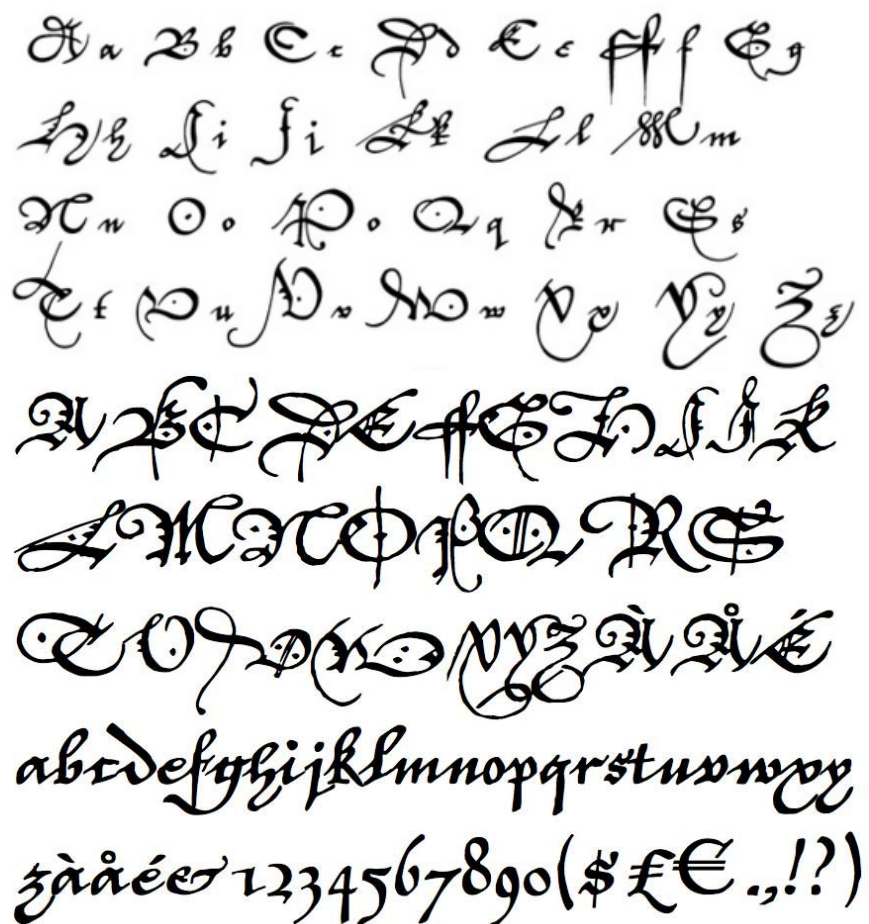 A a B b C c D d E e F f G g
H h I i J i K k L l M m
N n O o P o Q q R r S s
T t U u V v W w X x Y y Z z
A B C D E F G H I J K
L M N O P Q R S
T U V W X Y Z À Å É
abcdefghijklmnopqrstuvwxy
zàåé&1234567890($£€.,!?)